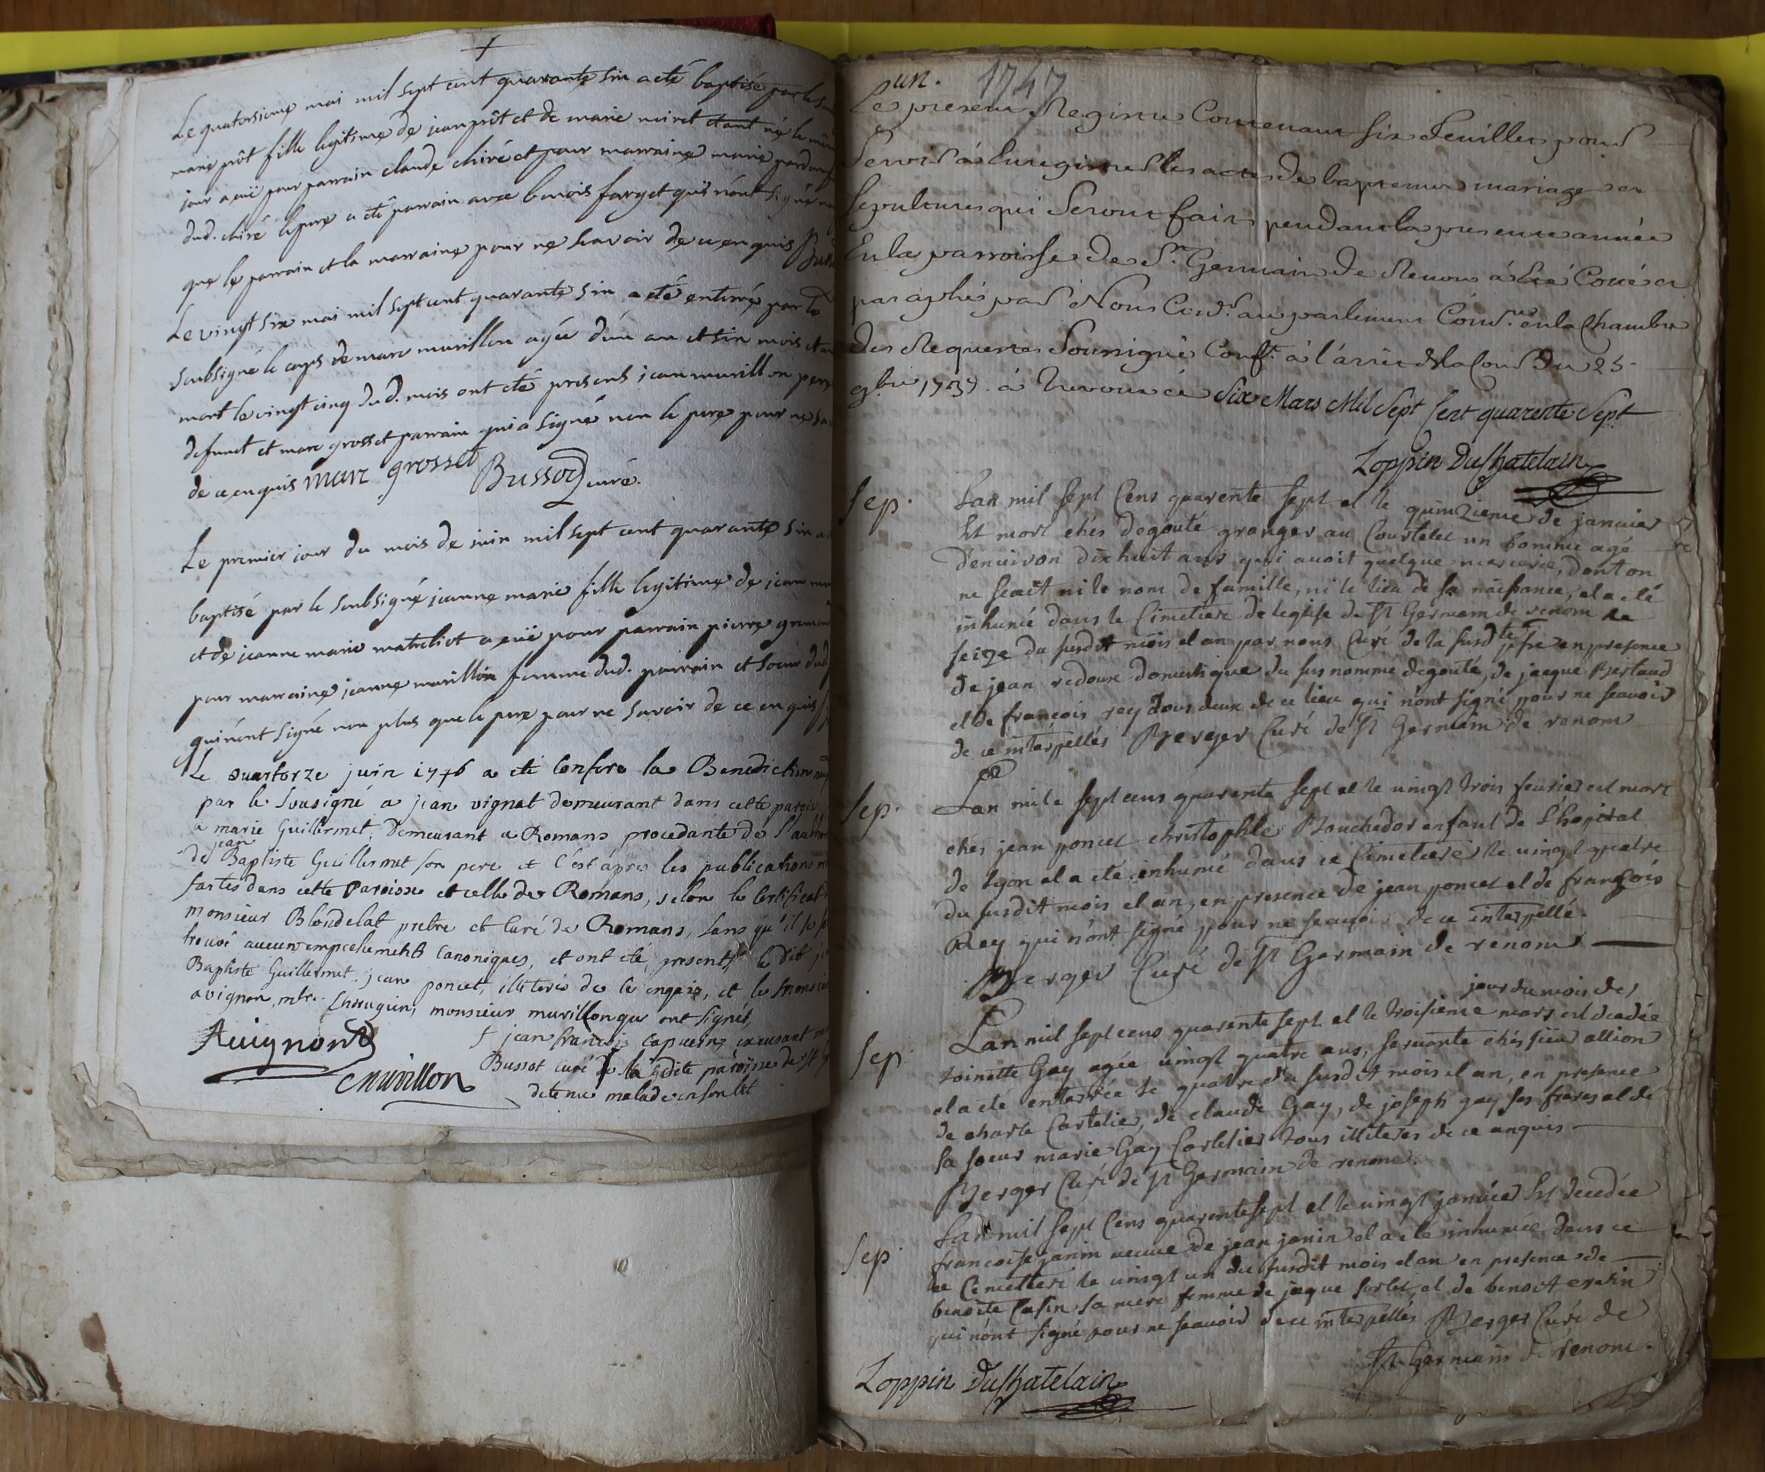 Le quatorsieme mai mil sept cent quarante six a eté baptisée par le
marie pôt fille legitime de jean pôt et de marie etant née le
jour a eüe pour parrain claude chiré et pour marraine marie
dud. chiré le pere a eté parrain avec benois farget qui n'ont signé
que le parrain et la marraine pour ne scavoir de ce enquis
Le vingt six mai mil sept cent quarante six a eté enterré par le
soubsigné le corps de marc murillon agée d'un an et six mois
mort le vingt cinq dud. mois ont eté presens jean murillon pere
defunct et marc grosset parrain qui a signé non le pere pour ne
de ce enquis marc grosset Bussod curé.
Le premier jour du mois de juin mil sept cent quarante six
baptisé par le soubsigné jeanne marie fille legitime de jean
et de jeanne marie a eüe pour parrain pierre
pour marraine jeanne murillon femme dud. parrain et soeur dud
qui n'ont signé non plus que le pere pour ne savoir de ce enquis
Le quartorze juin 1746 a eté confere la Benediction
par le sousigné a jean vignat demeurant dans cette paroisse
a marie Guillermet demeurant a Romans procedante de l'
jean
de Baptiste Guillermet son pere et c'est apres les publications
faites dans cette paroisse et celle de Romans, selon le certificat
monsieur Blondelat pretre et curé de Romans, sans qu'il se
trouvé aucun empechements canoniques, et ont eté present le dit
Baptiste Guillermet jean poncet, illiterés de ce enquis, et le
avignon, monsieur murillon qui ont signés,
Avignon + jean francois capucin
Bussot curé de la ditte paroisse de St
Murillon
detenu malade en son lit
un. 1747
Le present Registre Contenant six feuillets pour
servir à Enregistrer les actes de baptemes mariages et
sepultures qui seront fairs pendant la presente année
En la parroisse de St. Germain de Renon à Eté Cotté et
paraphé par Nous Cons. au parlement Comre. en la Chambre
des Requestes Soussigné Conft. à l'arrêt de la Cour Du 25
9bre 1737. à Trevoux ce Six Mars Mil Sept Cent quarente Sept
Loppin Duchatelain
Sep. Lan mil sept Cens quarente sept et le quinzieme de janvier
Est mort chés degouté granger au Courtelet un homme agé
d'environ dixhuit ans qui avoit quelque, dont on
ne scait ni le nom de famille, ni le lieu de sa naissance, et a eté
inhumé dans le Cimetiere de leglise de St Germain de renom le
seize du susdit mois et an par nous Curé de la susdte psse en presence
de jean redoux domestique du sus nommé degouté, de jacque Bertaud
et de francois rey tous deux de ce lieu qui nont signé pour ne scavoir
de ce interpellés Berger Curé de St Germain de renom
Sep. Lan mile sept cens quarente sept et le vingt trois fevrier est mort
chés jean poncet christophle Bouchedor enfant de l'hopital
de lyon et a eté inhumé dans ce Cimetiere le vingt quatre
du susdit mois et an, en presence de jean poncet et de françois
Rey qui n'ont signé pour ne scavoir de ce interpellé.
Berger Curé de St Germain de renom
jour du mois de
Sep Lan mil sept cens quarente sept et le troisieme mars est decedée
toinette Gay agée vingt quatre ans, servante chés sieur allion
et a eté enterrée le quatre du susdit mois et an, en presence
de charle Cartelier, de claude Gay, de joseph gay ses freres et de
sa soeur marie Gay Cartelier tous illiterés de ce enquis
Berger Curé de St Germain de renom.
Sep Lan mil sept Cens quarente sept et le vingt janvier Est decedée
francoise janin veuve de jean janin et a eté inhumée dans ce
ce Cimettere le vingt un du susdit mois et an en presence de
benoite Casin sa mere femme de jaque sorlet, et de benoit
qui n'ont signé pour ne scavoir de ce interpellés Berger Curé de
St Germain de renom.
Loppin Duchatelain